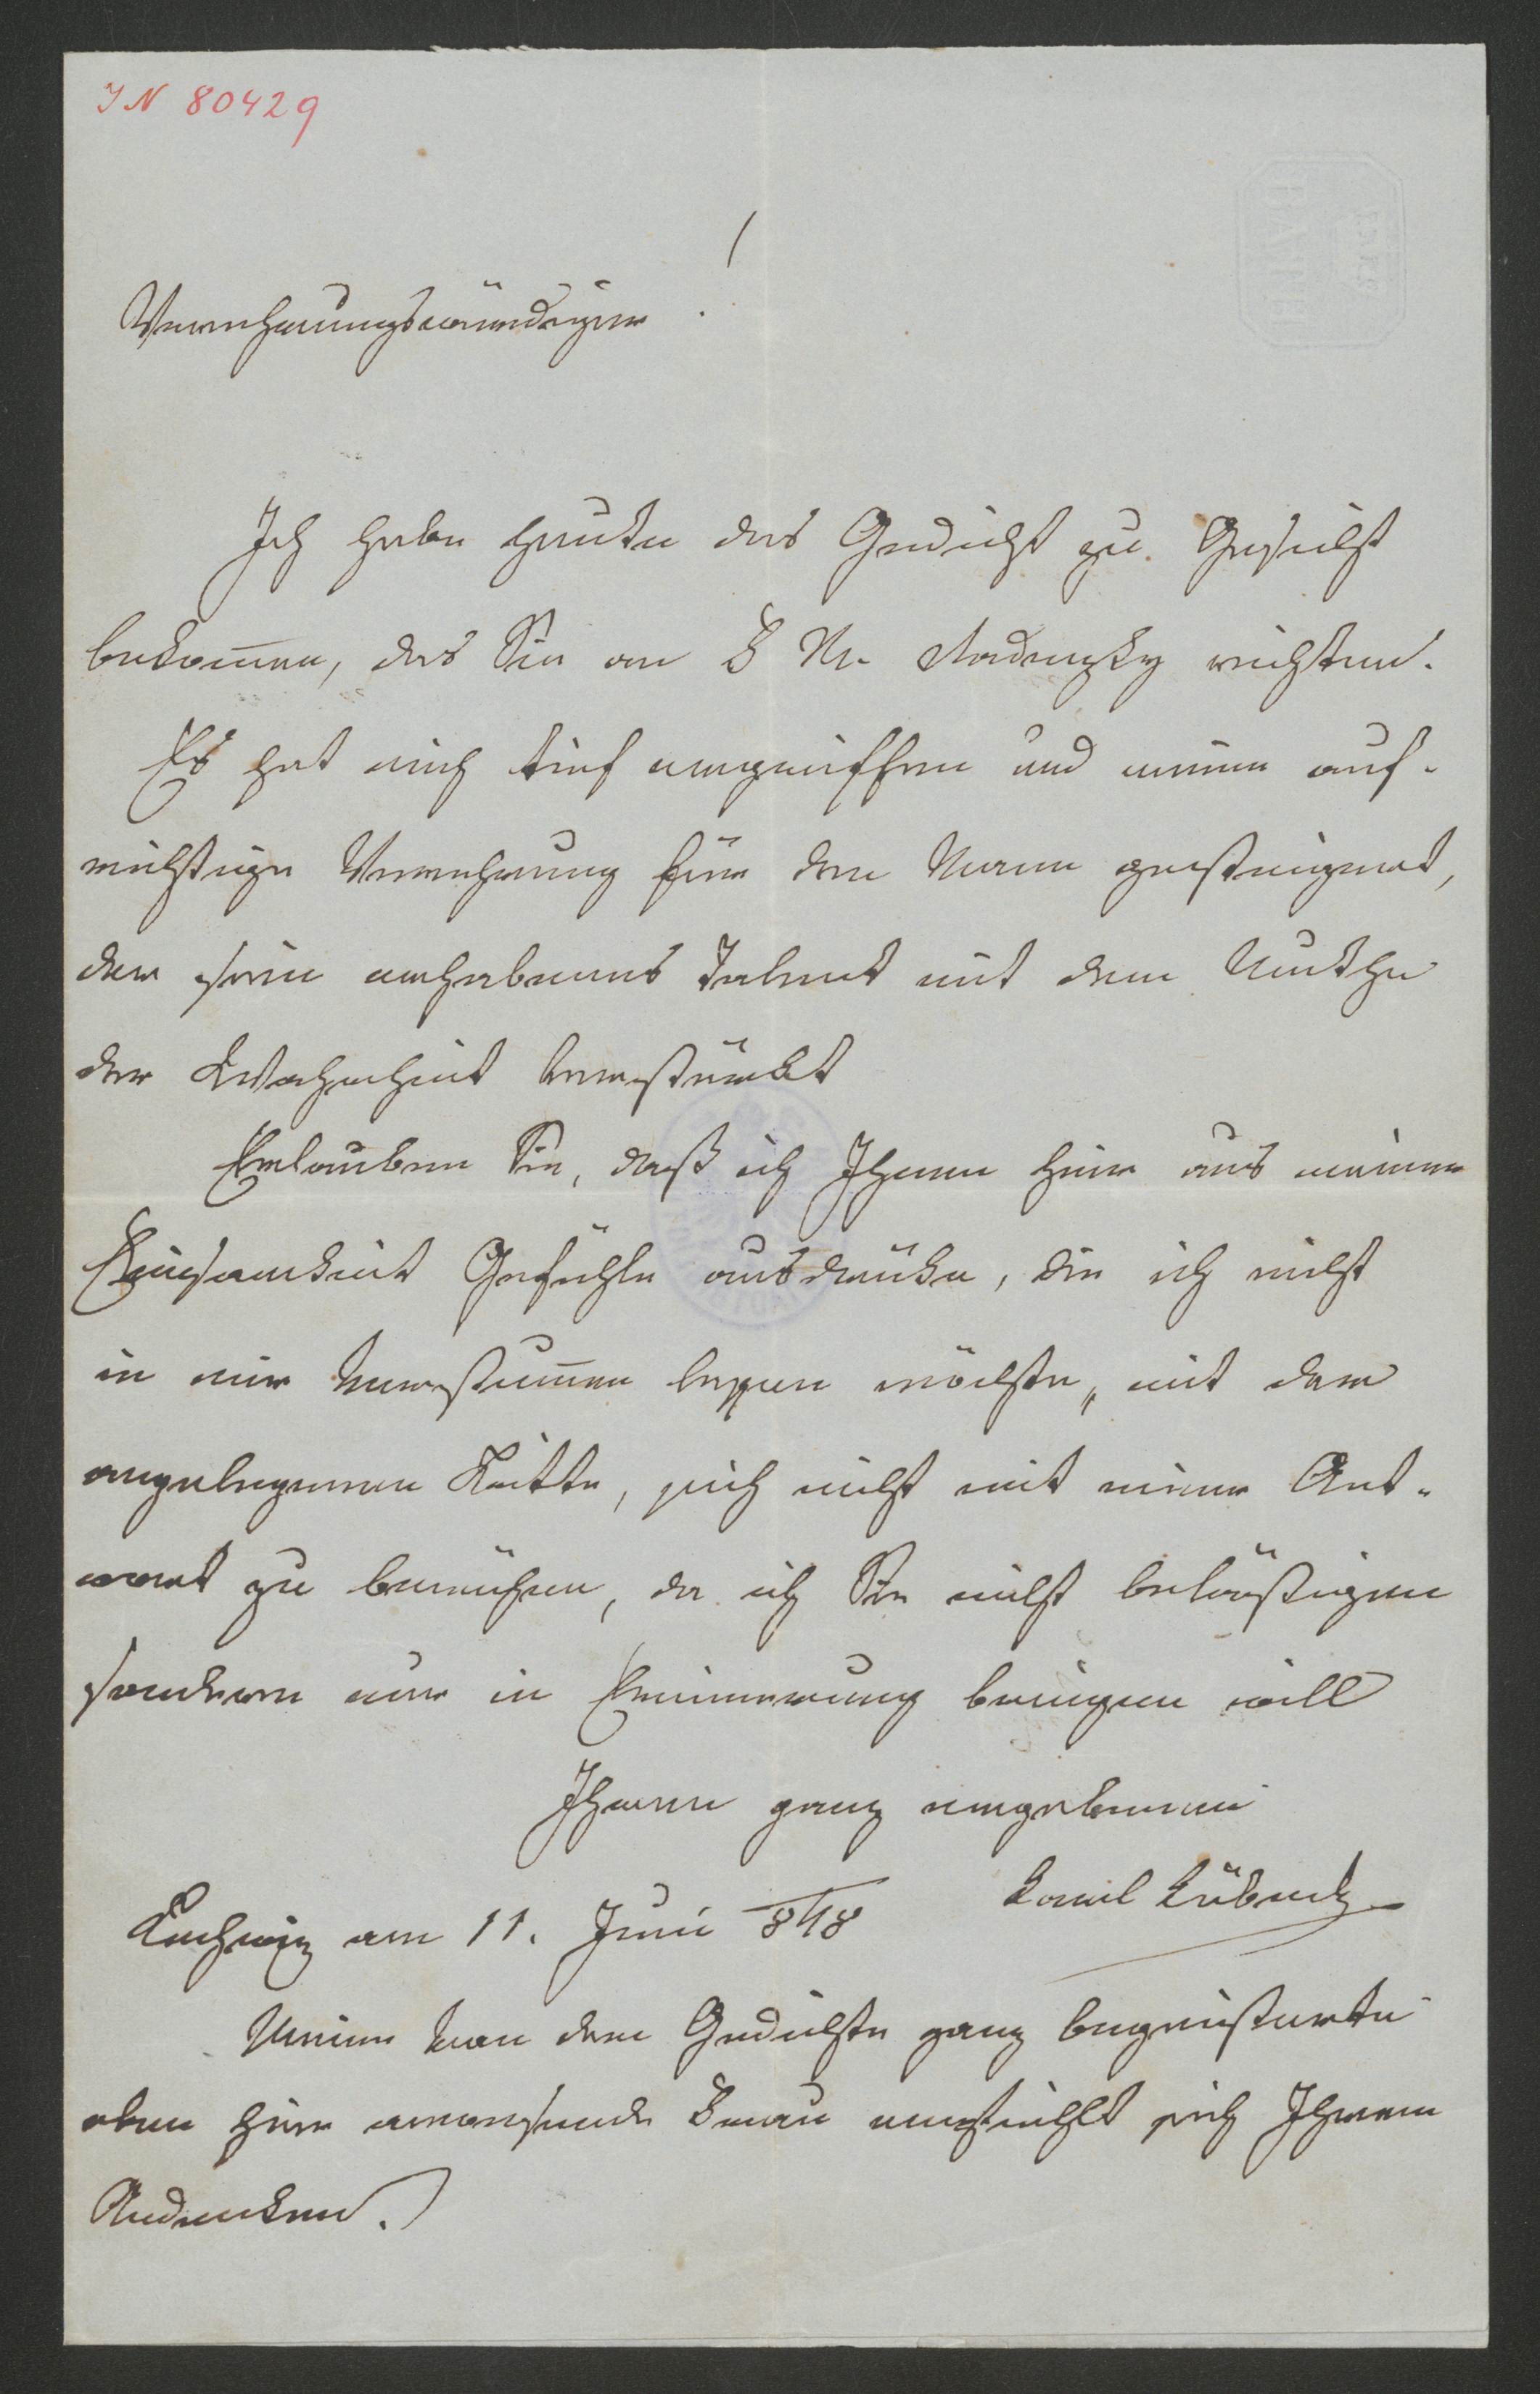 IN 80429
Verehrungswürdiger !
Ich habe heute das Gedicht zu Gesicht
bekom̄en, das Sie an F. M. Radezky richteten.
Es hat mich tief ergriffen und meine auf-
richtige Verehrung für den Mann gesteigert,
der sein erhabenes Talent mit dem Muthe
der Wahrheit verstärkt
Erlauben Sie, daß ich Ihnen hier aus meiner
Einsamkeit Gefühle ausdrüke, die ich nicht
in mir verstum̄en lassen möchte, mit der
angelegenen Bitte, sich nicht mit einer Ant-
wort zu bemühen, da ich Sie nicht belästigen
sondern nur in Erinnerung bringen will
Ihrern ganz ergebenen
Karl Kübeck
am 11. Juni 848
Meine von dem Gedichte ganz begeisterte
eben hier anwesende Frau empfiehlt sich Ihrem
Andenken.